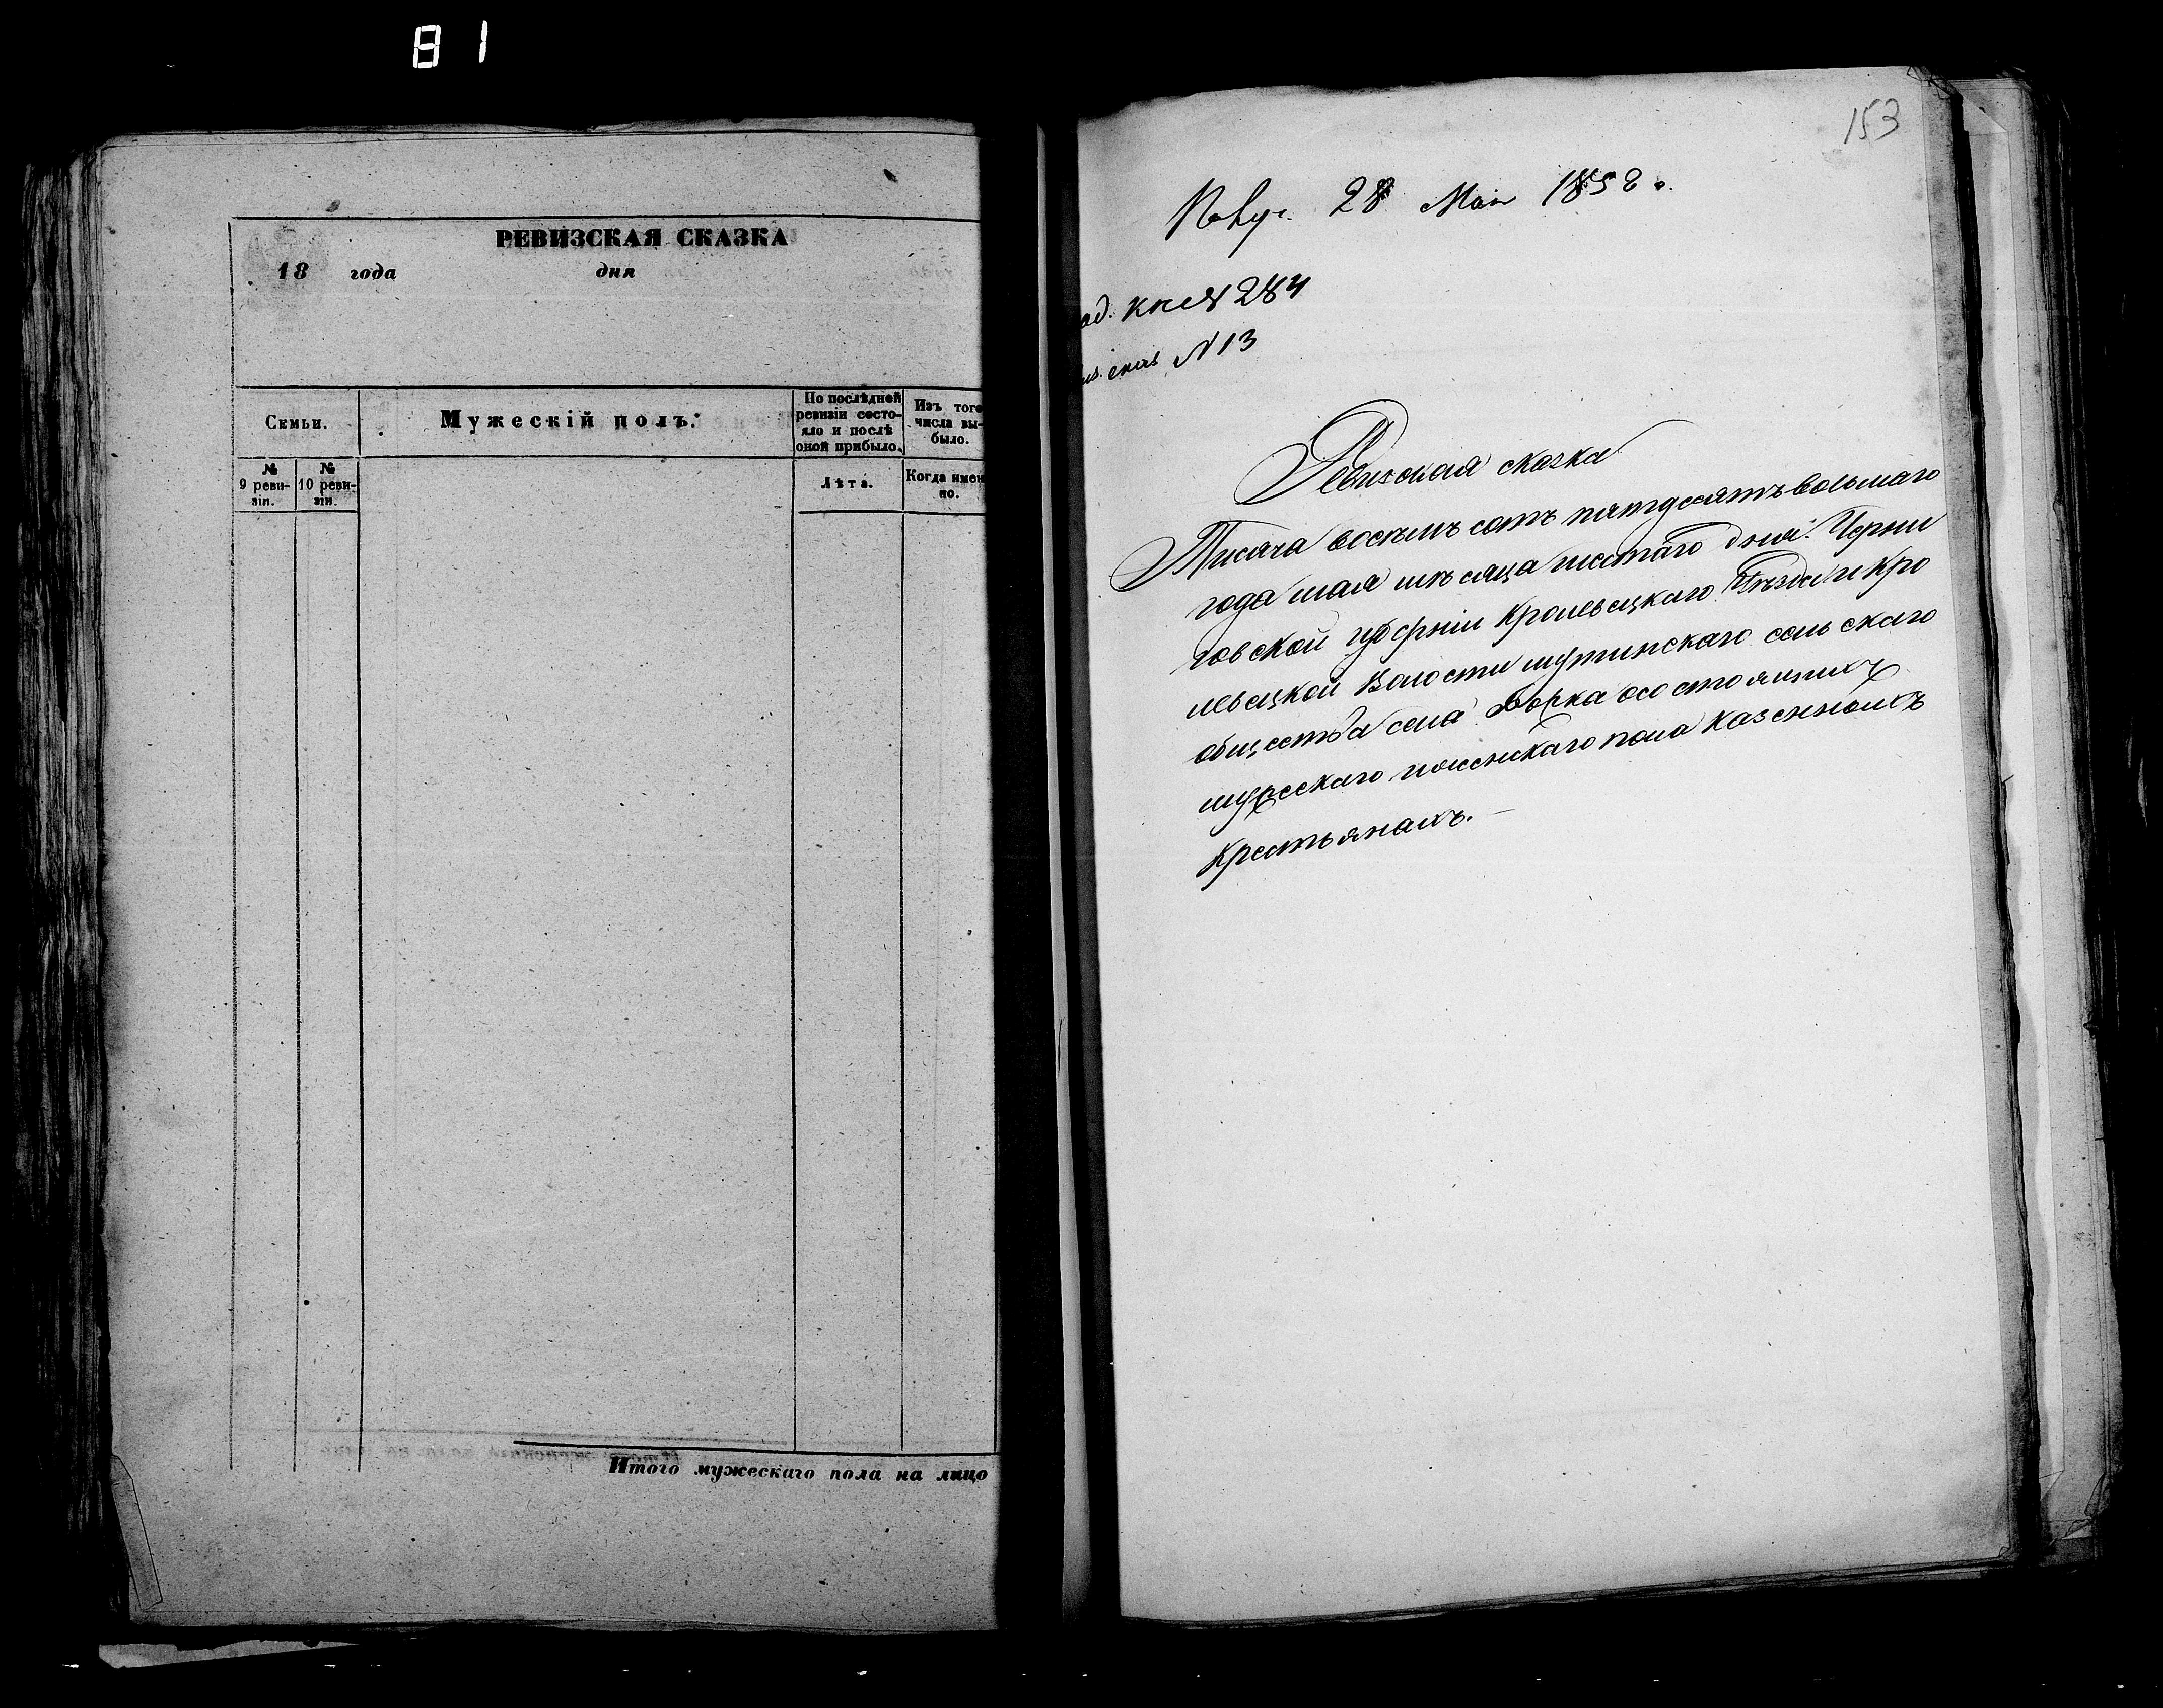 81
РЕВИЗСКАЯ СКАЗКА
18 года дня
Семьи.
Мужескій полъ.
По послѣдней ревизіи состо-
яло и послѣ
оной прибыло.
Изъ того
числа вы-
было.
№
9 реви-
зіи.
№
10 реви-
зіи.
Лѣта.
Когда имен
но.
Итого мужескаго пола на лицо
153
28 Мая 1858 г.
кн № 284
№ 13
Ревизская сказка
Тисяча восемъ сотъ пятдесятъ восьмаго
года мая мѣсяца шестаго дня. Черни
говской губерніи Кролевецкаго Уѣзда и Кро
левецкой Волости мутинскаго сельскаго
общества села Бърка о состоящихъ
мужескаго и женскаго пола казенныхъ
Крестьянахъ.